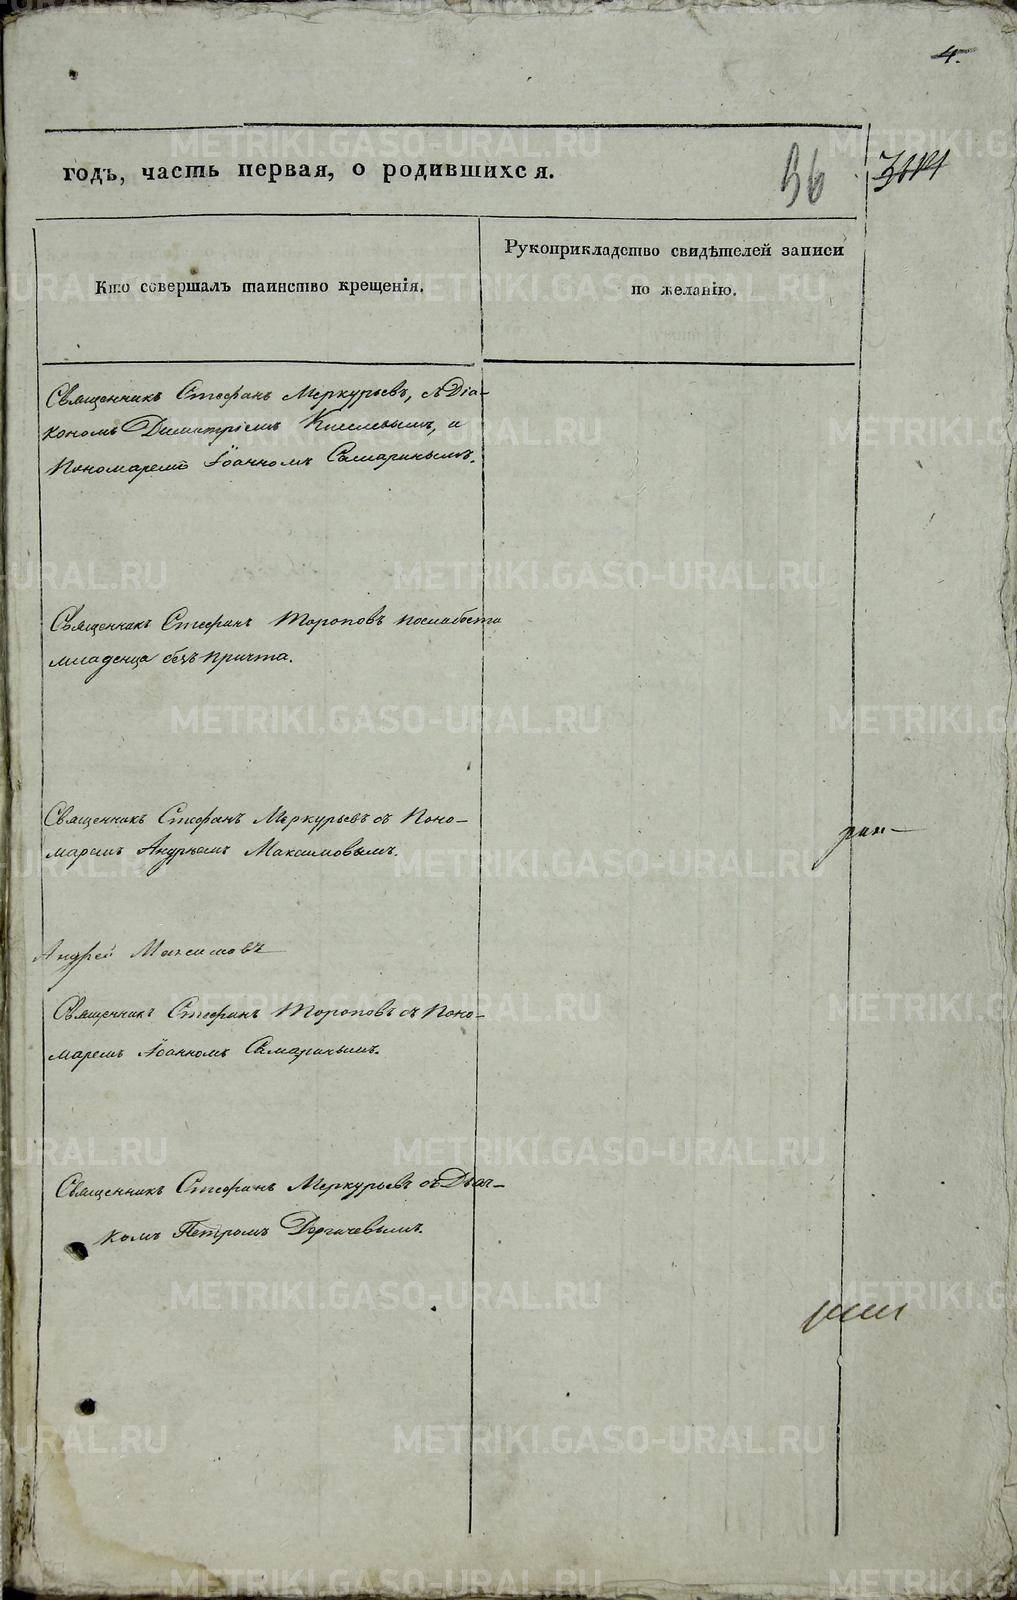 4.
годъ, часть первая, о родившихся.
36
Кто совершалъ таинство крещенія.
Рукоприкладство свидѣтелей записи
по желанію.
Священникъ Стефанъ Меркурьевъ, съ Діа-
кономъ Димитріемъ Киселевымъ, и
Пономаремъ Іоанномъ Самаринымъ.
Священникъ Стефанъ Тороповъ
младенца безъ причта.
Священникъ Стефанъ Меркурьевъ съ Поно-
маремъ Андреемъ Максимовымъ.
Андрей Максимовъ
Священникъ Стефанъ Тороповъ съ Поно-
маремъ Іоанномъ Самаринымъ.
Священникъ Стефанъ Меркурьевъ съ Дьяч-
комъ Петромъ
METRIKI.GASO-URAL.RU